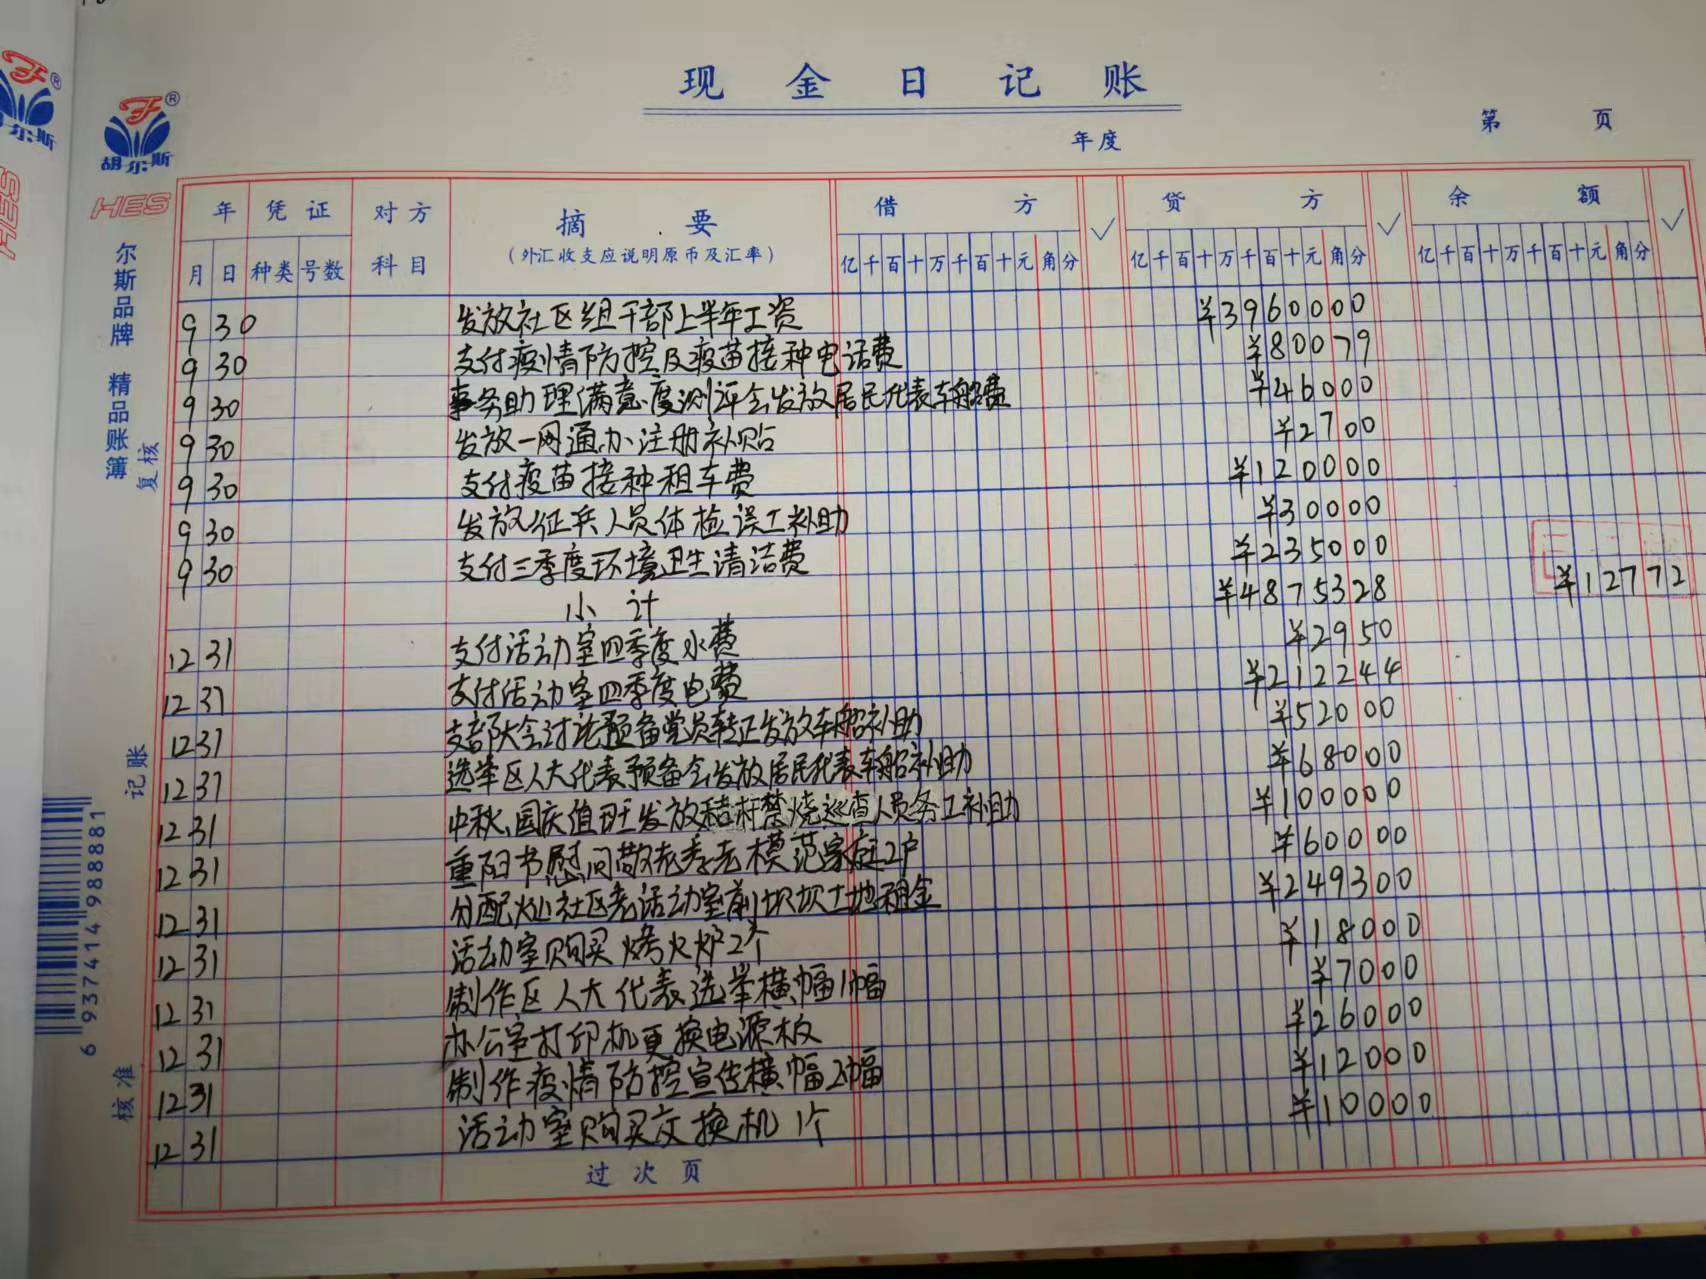 现金日记账
年度
第 页
胡尔斯
HES
尔斯品牌 精品账簿
复核
记账
核准
6 937414 988881
年 凭证 对方 摘要 借方 ✓ 贷方 ✓ 余额 ✓
月 日 种类 号数 科目 (外汇收支应说明原币及汇率) 亿千百十万千百十元角分 亿千百十万千百十元角分 亿千百十万千百十元角分
9 30 发放社区组干部上半年工资 ¥3960000
9 30 支付疫情防控及疫苗接种电话费 ¥80079
9 30 事务助理满意度测评会发放居民代表车船费 ¥46000
9 30 发放一网通办注册补贴 ¥2700
9 30 支付疫苗接种租车费 ¥120000
9 30 发放征兵人员体检误工补助 ¥30000
9 30 支付三季度环境卫生清洁费 ¥235000
小计 ¥4875328 ¥12772
12 31 支付活动室四季度水费 ¥2950
12 31 支付活动室四季度电费 ¥212244
12 31 支部大会讨论预备党员转正发放车船补助 ¥52000
12 31 选举区人大代表预备会发放居民代表车船补助 ¥68000
12 31 中秋、国庆值班发放秸秆禁烧巡查人员务工补助 ¥100000
12 31 重阳节慰问敬老孝老模范家庭2户 ¥60000
12 31 分配 社区老活动室前坝坝土地租金 ¥249300
12 31 活动室购买烤火炉2个 ¥18000
12 31 制作区人大代表选举横幅1幅 ¥7000
12 31 办公室打印机更换电源板 ¥26000
12 31 制作疫情防控宣传横幅2幅 ¥12000
12 31 活动室购买交换机1个 ¥10000
过次页